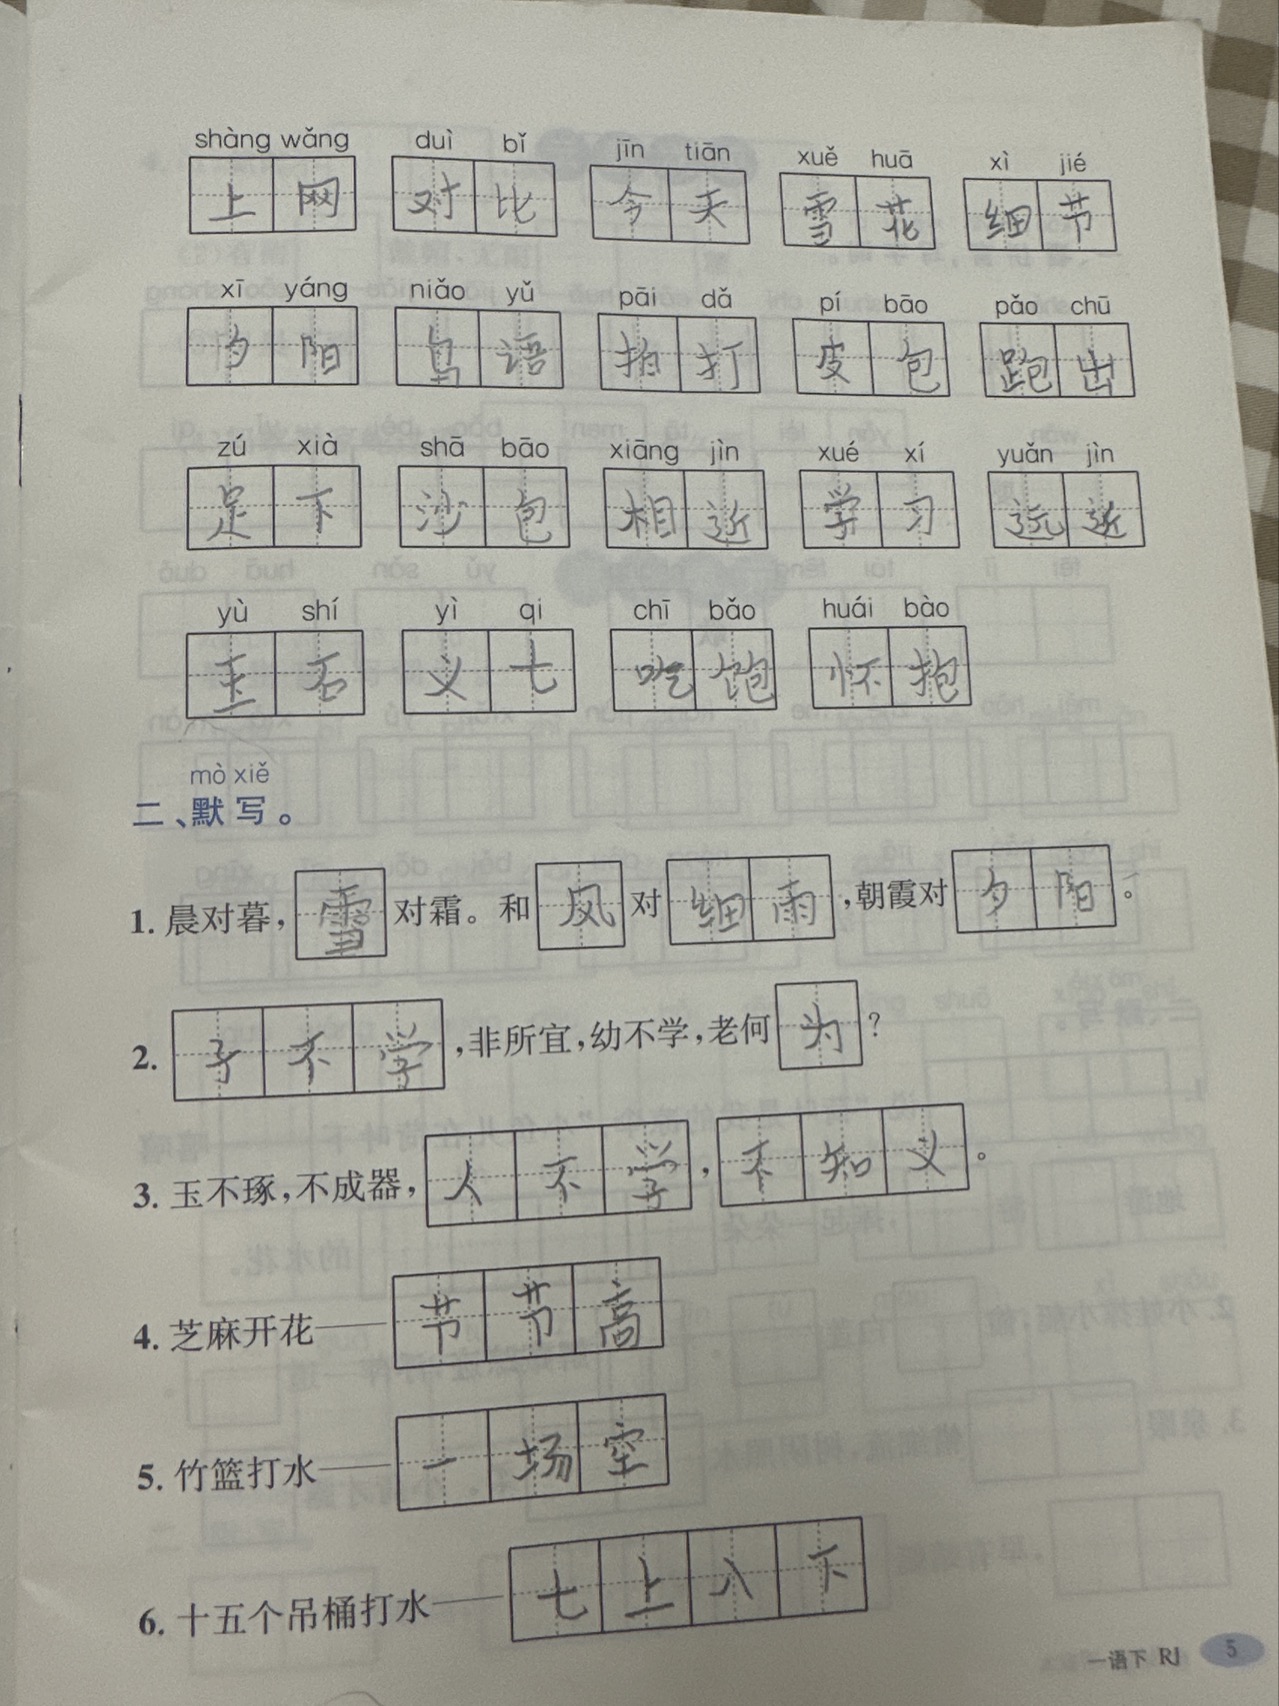 shàng wǎng duì bǐ jīn tiān xuě huā xì jié
上网 对比 今天 雪花 细节
xī yáng niǎo yǔ pāi dǎ pí bāo pǎo chū
夕阳 鸟语 拍打 皮包 跑出
zú xià shā bāo xiāng jìn xué xí yuǎn jìn
足下 沙包 相近 学习 远近
yù shí yì qi chī bǎo huái bào
玉石 义七 吃饱 怀抱
mò xiě
二、默写。
1. 晨对暮，雪对霜。和风对细雨，朝霞对夕阳。
2. 子不学，非所宜，幼不学，老何为？
3. 玉不琢，不成器，人不学，不知义。
4. 芝麻开花——节节高
5. 竹篮打水——一场空
6. 十五个吊桶打水——七上八下
一语下 RJ 5